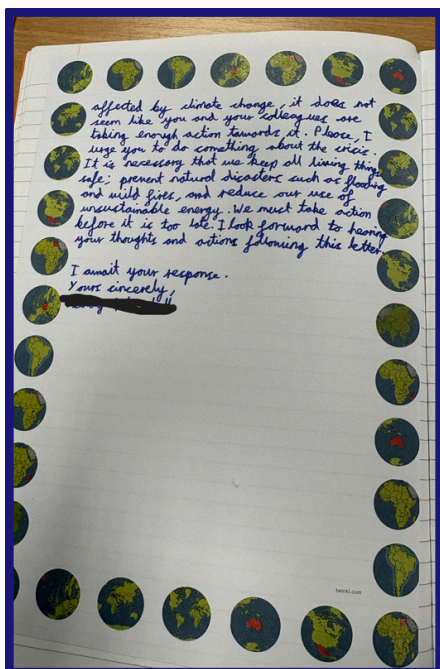 affected by climate change, it does not
seem like you and your colleagues are
taking enough action towards it. Please, I
urge you to do something about the crisis.
It is necessary that we keep all living things
safe; prevent natural disasters such as flooding
and wild fires, and reduce our use of
unsustainable energy. We must take action
before it is too late. I look forward to hearing
your thoughts and actions following this letter.
I await your response.
Yours sincerely,
twinkl.com